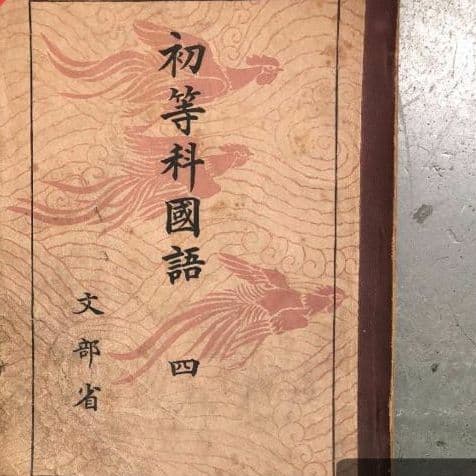 初等科國語 四
文部省